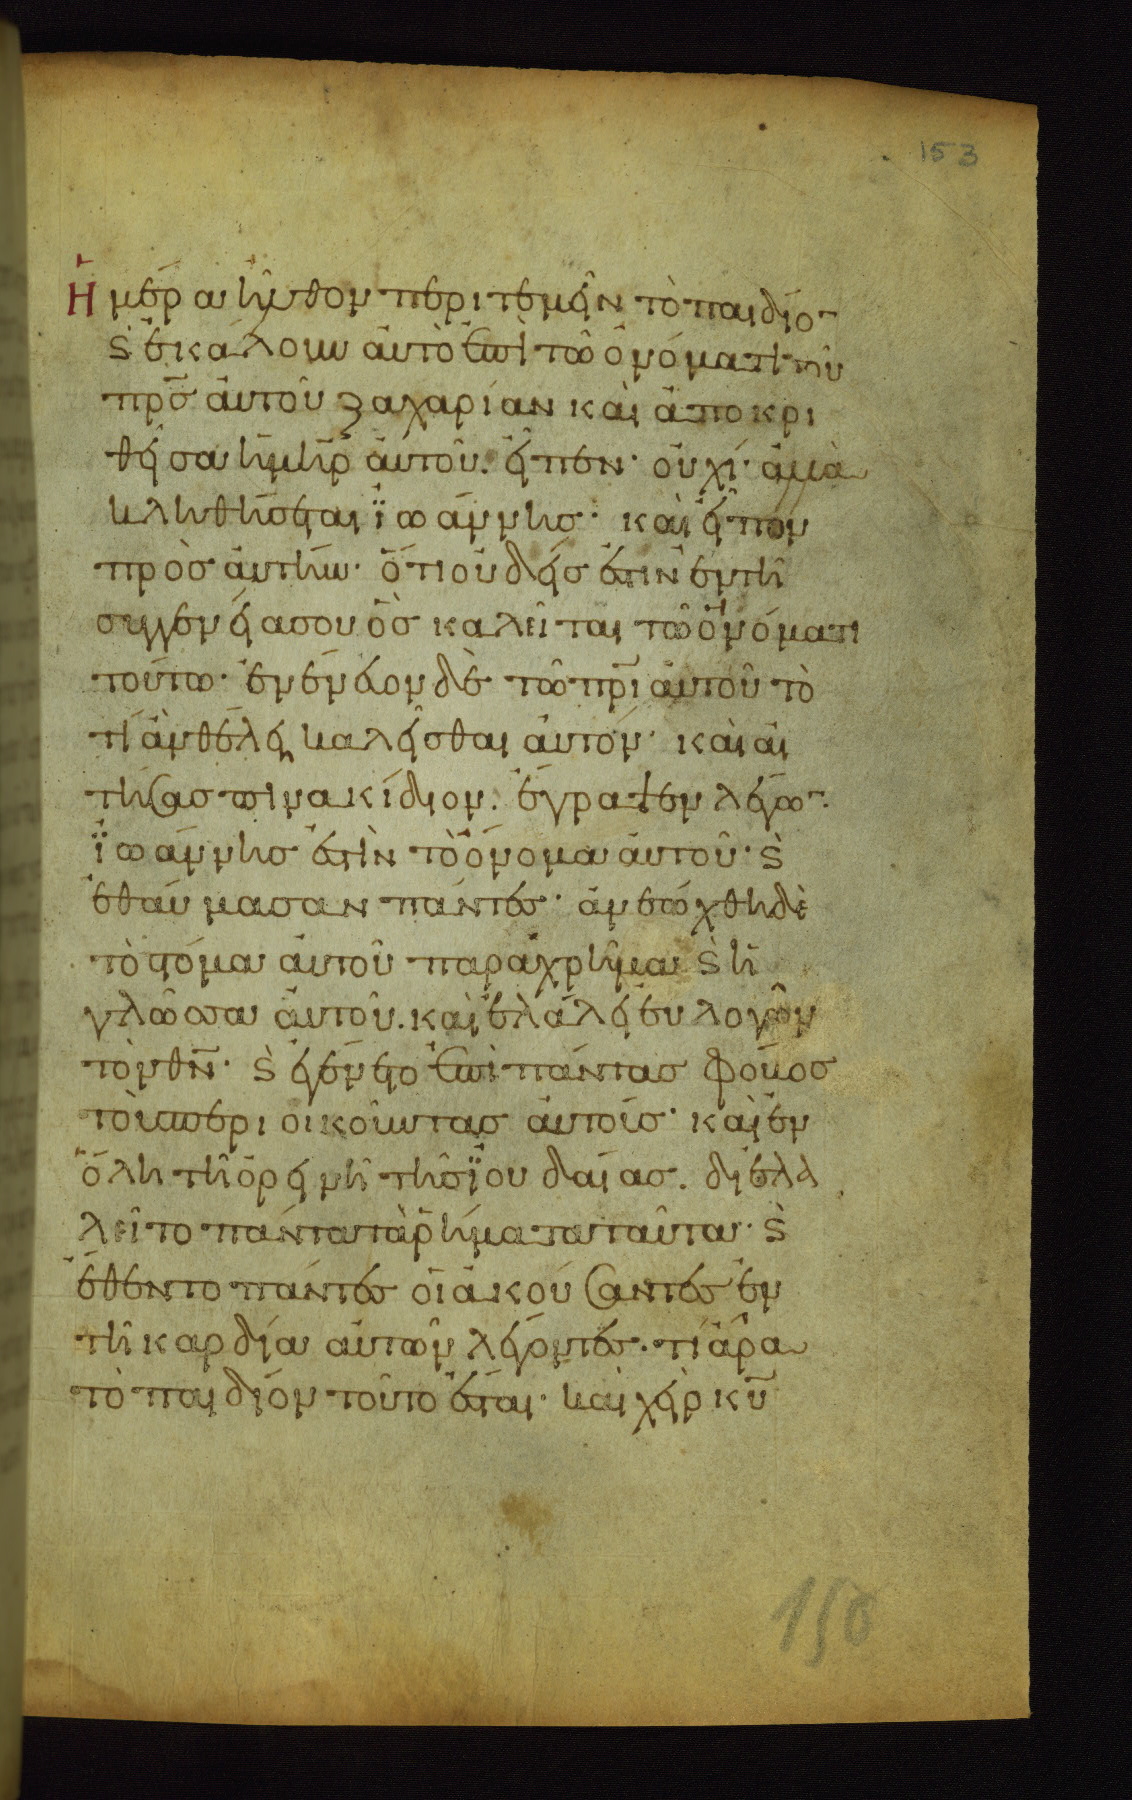 153
Ἡμέρα ἦλθον περιτεμεῖν τὸ παιδίο¯
ϗ ἐκάλουν αὐτὸ ἐπὶ τῶ ὀνόματι τοῦ
πρ̅σ αὐτοῦ ζαχαρίαν καὶ ἀποκρι
θεῖσα ἡ μη̅ρ αὐτοῦ. εἶπεν· οὐχί· ἀλλὰ
κληθήσεται ϊωάννησ· καὶ εἶπον
πρὸσ αὐτήν· ὅτι οὐδείσ ἐστιν ἐν τῆ
συγγενεία σου ὃσ καλεῖται τῶ ὀνόματι
τούτω· ἐνένευον δὲ τῶ πρ̅ι αὐτοῦ τὸ
τί ἂν θέλει καλεῖσθαι αὐτόν· καὶ αἰ
τήσασ πινακίδιον. ἔγραψεν λέγω¯·
ϊωάννησ ἐστὶν τὸ ὄνομα αὐτοῦ· ϗ
ἐθαύμασαν πάντεσ· ἀνεώχθη δὲ
τὸ στόμα αὐτοῦ παραχρῆμα ϗ ἡ
γλῶσσα αὐτοῦ. καὶ ἐλάλει εὐλογῶν
τὸν θν̅· ϗ ἐγένετο ἐπὶ πάντασ φόβοσ
τοὺσ περιοικοῦντασ αὐτούσ· καὶ ἐν
ὅλη τῆ ὀρεινῆ τῆσ ϊουδαίασ. διελα
λεῖτο πάντα τὰ ῥήματα ταῦτα· ϗ
ἔθεντο πάντεσ οἱ ἀκούσαντεσ ἐν
τῆ καρδία αὐτῶν λέγοντεσ· τί ἄρα
τὸ παιδίον τοῦτο ἔσται· καὶ χεὶρ κυ̅
150